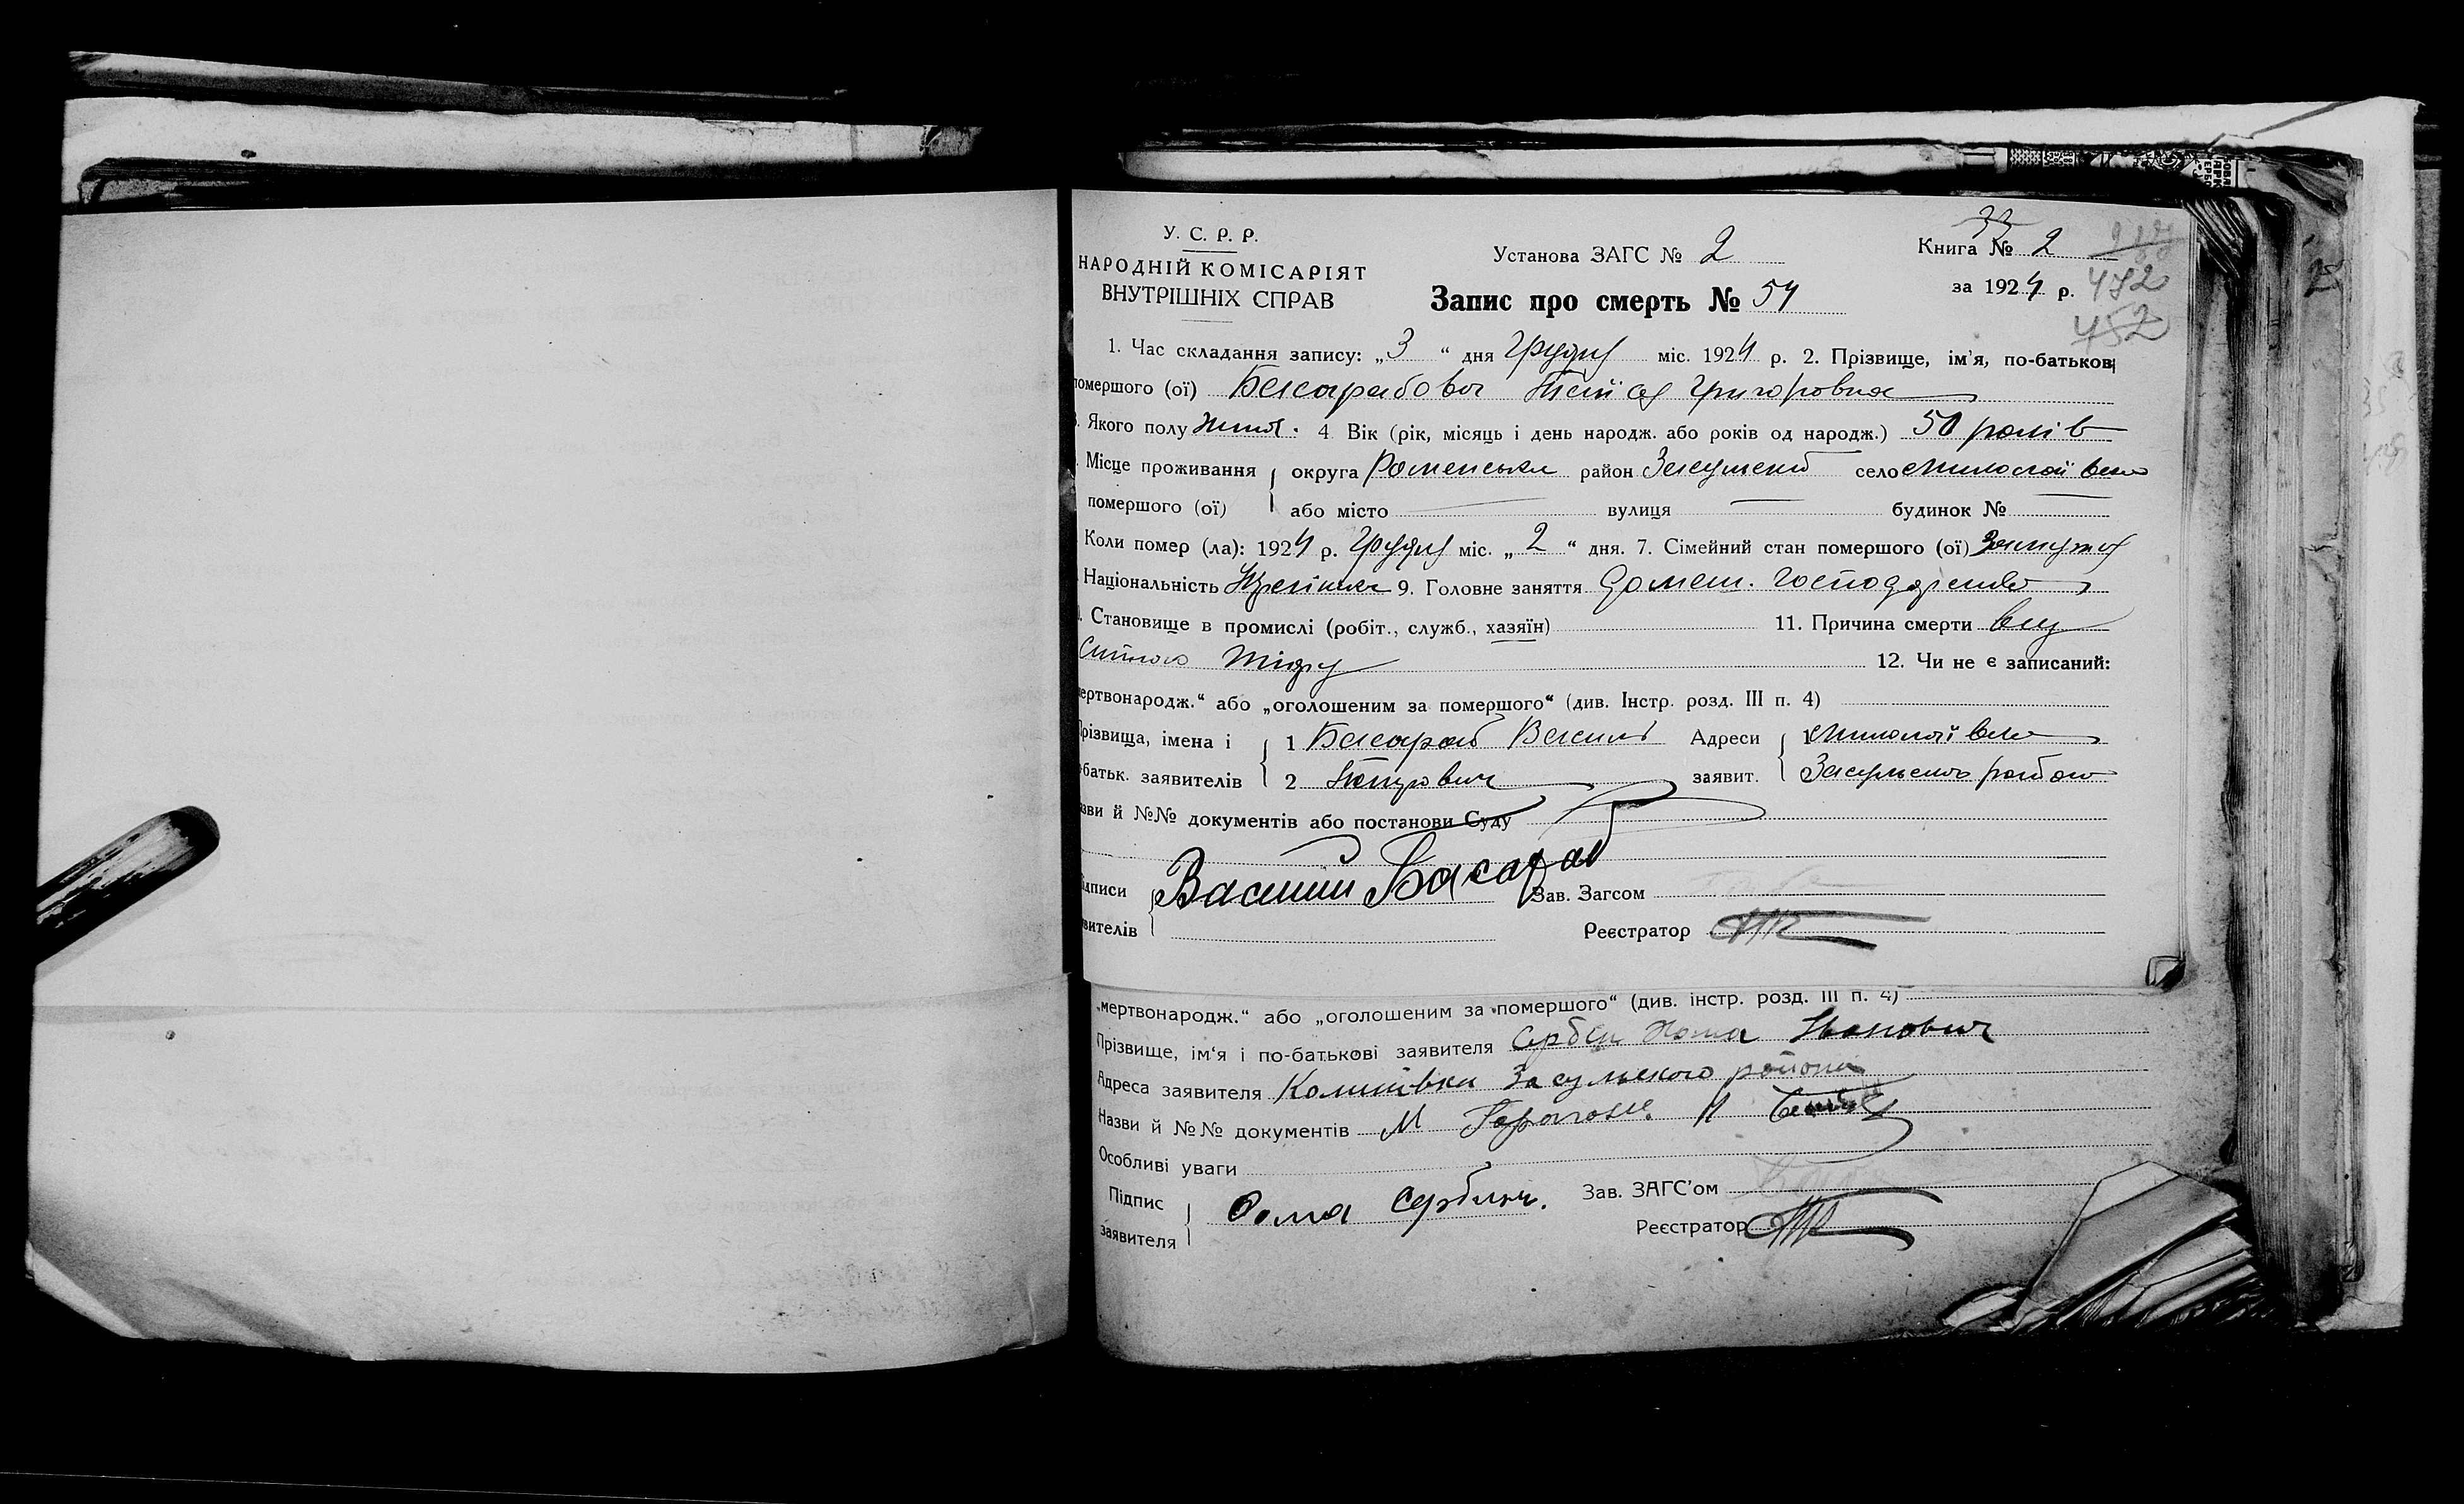 У. С. Р. Р.
НАРОДНІЙ КОМІСАРІЯТ
ВНУТРІШНІХ СПРАВ
Установа ЗАГС № 2
Книга № 2
за 1924 р.
472
452
Запис про смерть № 54
1. Час складання запису: „3 “ дня Грудня міс. 1924 р. 2. Прізвище, ім'я, по-батькові
померлого (ої) Басарабова Таїса Григоровна
Якого полу жіноч. 4 Вік (рік, місяць і день народж. або років од народж.) 50 років
Місце проживання округа Роменська район Засульськ село Миколаївка
помершого (ої) або місто вулиця будинок №
Коли помер (ла): 1924 р. Грудня міс. „ 2 “ дня. 7. Сімейний стан помершого (ої) Замужня
Національність Українка 9. Головне заняття Домаш. господарство
. Становище в промислі (робіт., служб., хазяїн) 11. Причина смерти
12. Чи не є записаний:
мертвонародж.“ або „оголошеним за помершого“ (див. Інстр. розд. III п. 4)
Прізвища, імена і 1 Басараб Василь Адреси 1 Миколаївка
батьк. заявителів 2 Петрович заявит. Засульського району
зви й №№ документів або постанови Суду
ідписи Василий Басараб Зав. Загсом
вителів Реєстратор
„мертвонародж.“ або „оголошеним за помершого“ (див. інстр. розд. III п. 4)
Прізвище, ім‘я і по-батькові заявителя Сербін Хома Іванович
Адреса заявителя Засульского района
Назви й №№ документів
Особливі уваги
Підпис Фома Сербин. Зав. ЗАГС'ом
заявителя Реєстратор